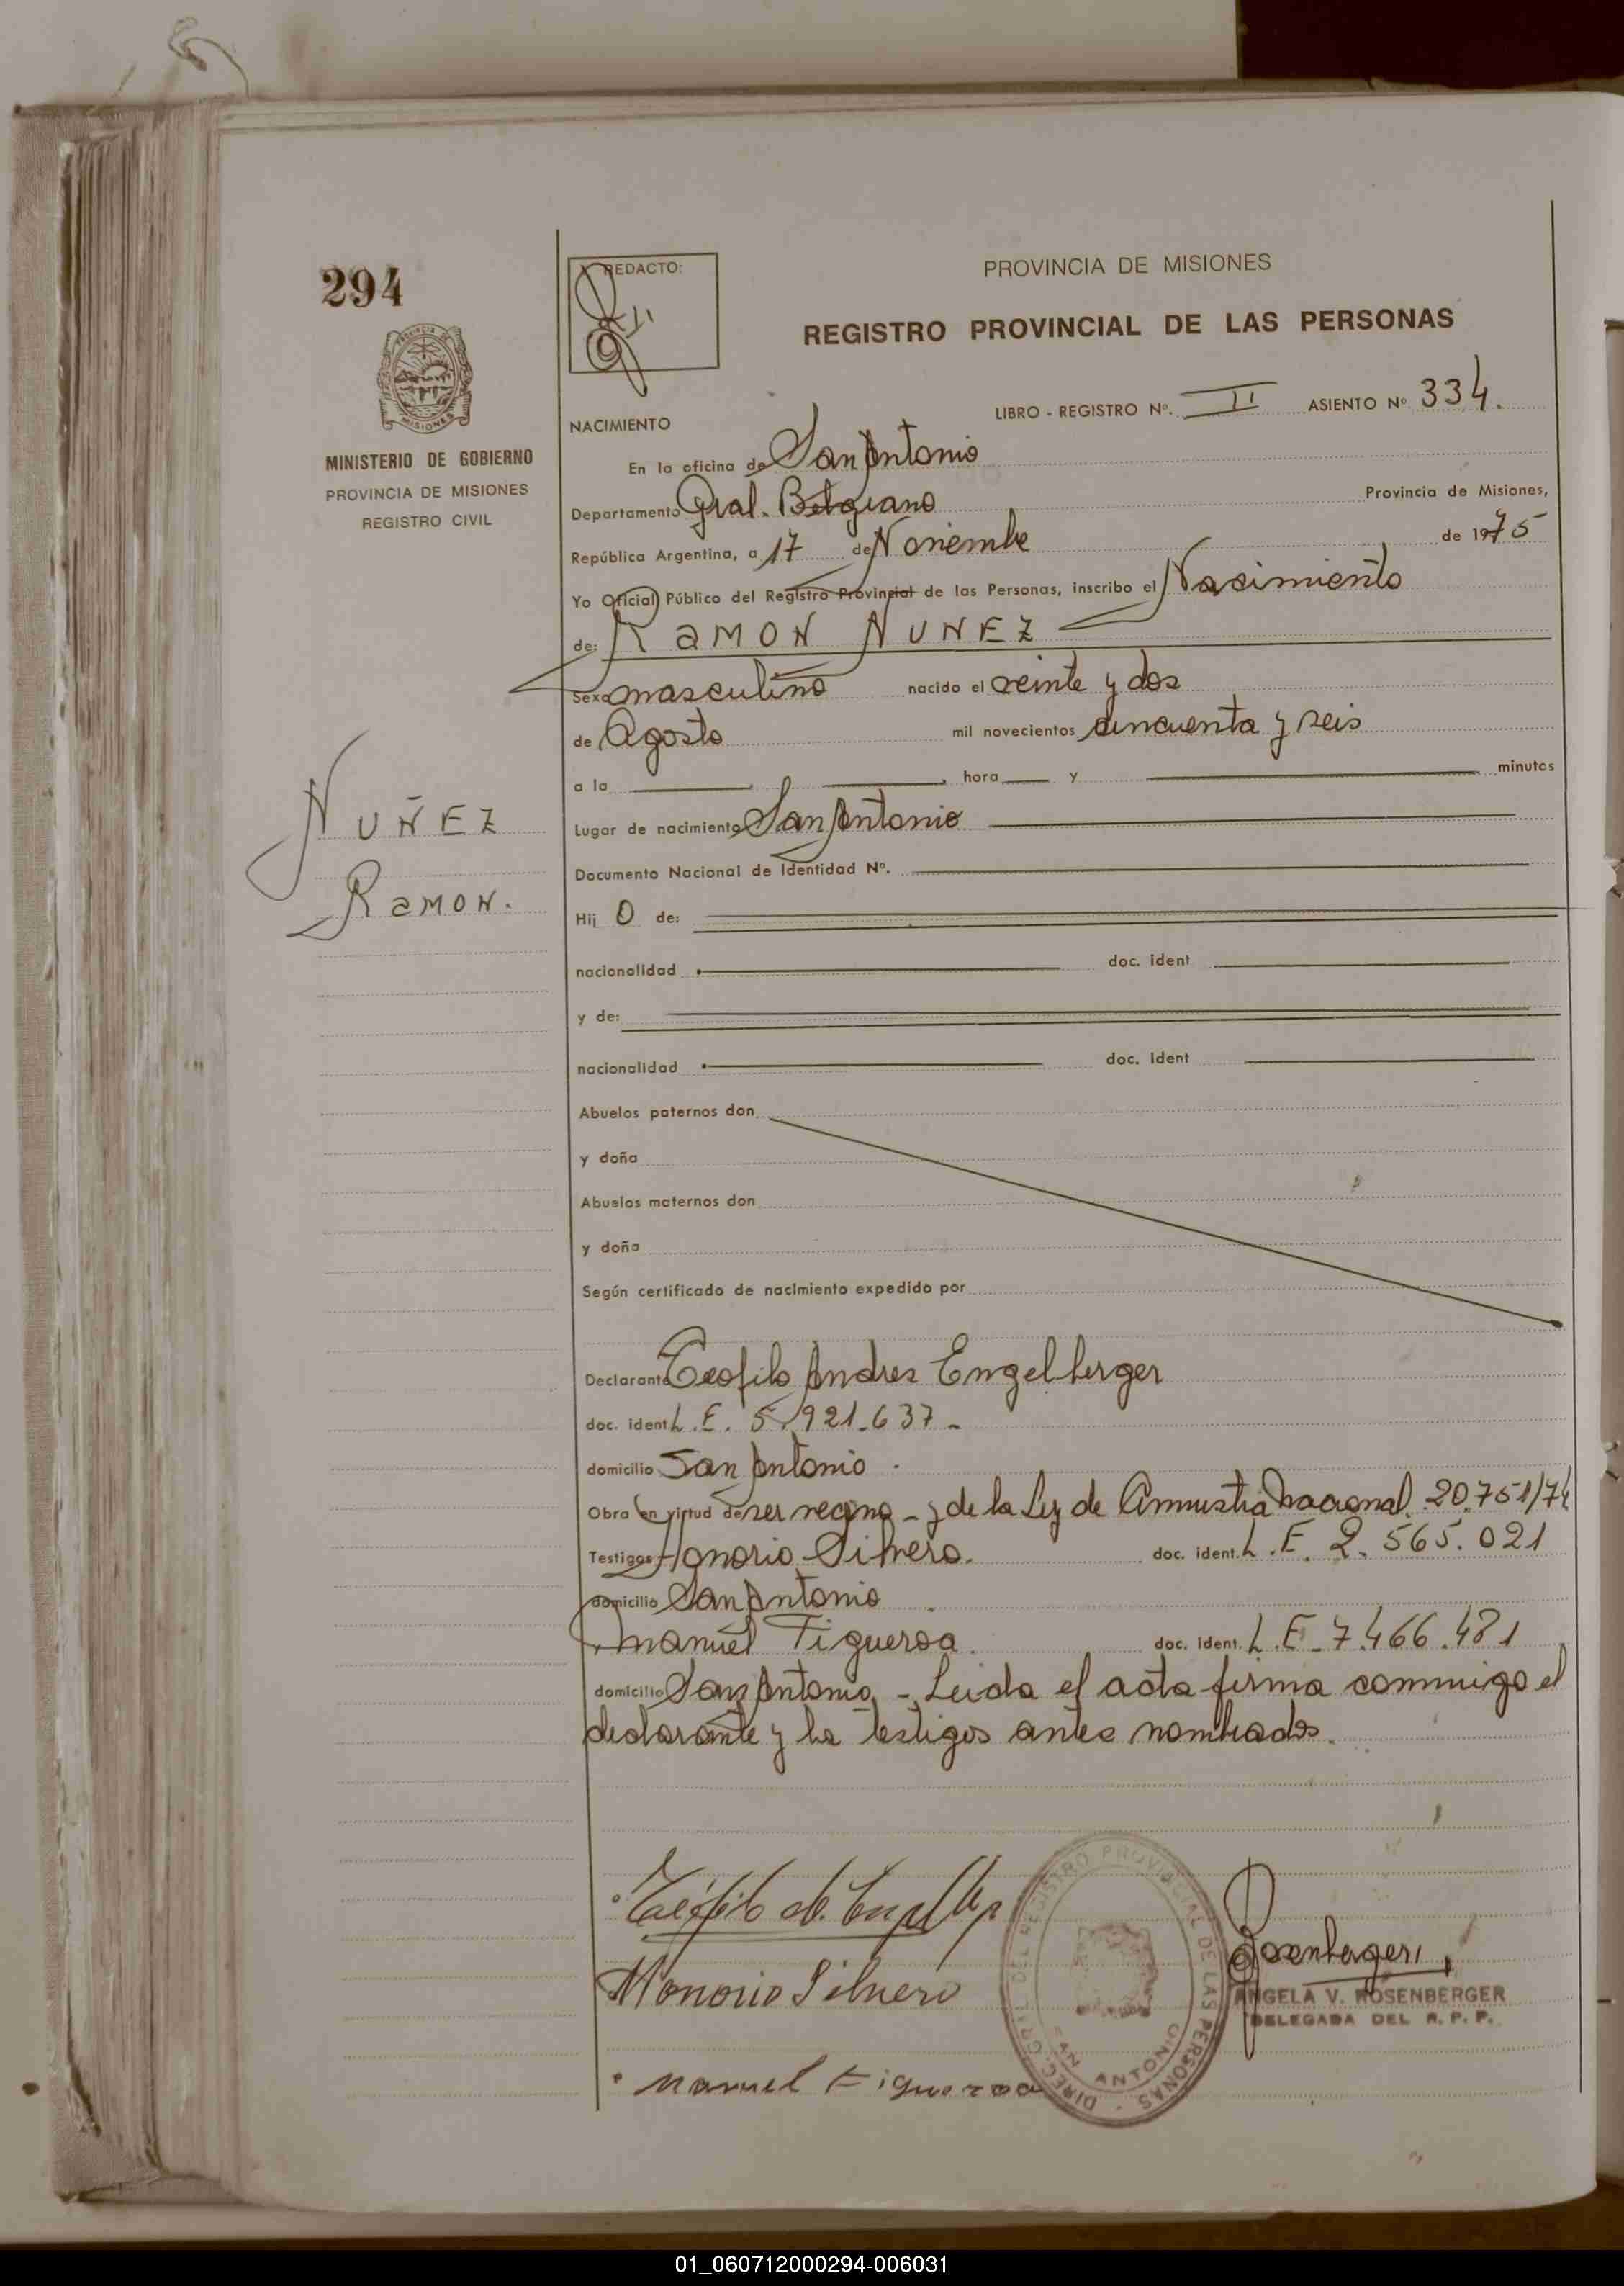 294
MINISTERIO DE GOBIERNO
PROVINCIA DE MISIONES
REGISTRO CIVIL
NUÑEZ
RAMON.
REDACTO:
PROVINCIA DE MISIONES
REGISTRO PROVINCIAL DE LAS PERSONAS
LIBRO - REGISTRO Nº. II ASIENTO Nº 334.
NACIMIENTO
En la oficina de San Antonio
Departamento Gral. Belgrano Provincia de Misiones,
República Argentina, a 17 de Noviembre de 1975
Yo Oficial Público del Registro Provincial de las Personas, inscribo el Nacimiento
de: RAMON NUÑEZ
Sexo masculino nacido el veinte y dos
de Agosto mil novecientos cincuenta y seis
a la hora y minutos
Lugar de nacimiento San Antonio
Documento Nacional de Identidad Nº.
Hij o de:
nacionalidad doc. ident
y de:
nacionalidad doc. ident
Abuelos paternos don
y doña
Abuelos maternos don
y doña
Según certificado de nacimiento expedido por
Declarante Teofilo Andres Engelberger
doc. ident L.E. 5.921.637-
domicilio San Antonio.
Obra en virtud de ser vecino - y de la Ley de Amnistia Nacional 20.751/74
Testigos Honorio Silvero. doc. ident. L.E. 2.565.021
domicilio San Antonio
Manuel Figueroa. doc. ident. L.E. 7.466.481
domicilio San Antonio - Leida el acta firma conmigo el
declarante y los testigos antes nombrados.
Honorio Silvero
Manuel Figueroa
DIREC. GRAL. DEL REGISTRO PROVINCIAL DE LAS PERSONAS
SAN ANTONIO
Rosenberger
ANGELA V. ROSENBERGER
DELEGADA DEL R. P. P.
01_060712000294-006031